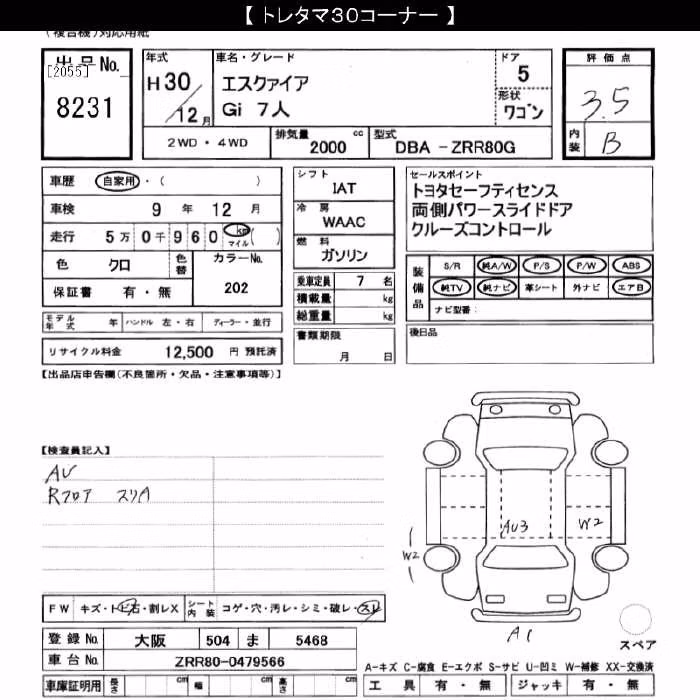 【 トレタマ30コーナー 】
(複合機)対応用紙
出品No.
[2055]
8231
年式
H30/12月
車名・グレード
エスクァイア
Gi 7人
ドア
5
形状
ワゴン
評価点
3.5
内装
B
2WD・4WD
排気量 2000 cc
型式 DBA -ZRR80G
車歴 自家用・( )
車検 9年 12月
走行 5万 0千 960 km マイル ( )
色 クロ 色替 カラーNo. 202
保証書 有・無
モデル年式 年 ハンドル 左・右 ディーラー・並行
リサイクル料金 12,500 円 預託済
シフト
IAT
冷房
WAAC
燃料
ガソリン
乗車定員 7 名
積載量 kg
総重量 kg
書類期限
月 日
セールスポイント
トヨタセーフティセンス
両側パワースライドドア
クルーズコントロール
装備品
S/R 純A/W P/S P/W ABS
純TV 純ナビ 革シート 外ナビ エアB
ナビ型番:
後日品
【出品店申告欄(不良箇所・欠品・注意事項等)】
【検査員記入】
AU
Rフロア スリA
AU3
W2
W2
A1
スペア
FW キズ・トビ石・割レX シート内装 コゲ・穴・汚レ・シミ・破レ・スレ
登録No. 大阪 504 ま 5468
車台No. ZRR80-0479566
車庫証明用 長さ cm 幅 cm 高さ cm
A-キズ C-腐食 E-エクボ S-サビ U-凹ミ W-補修 XX-交換済
工具 有・無 ジャッキ 有・無